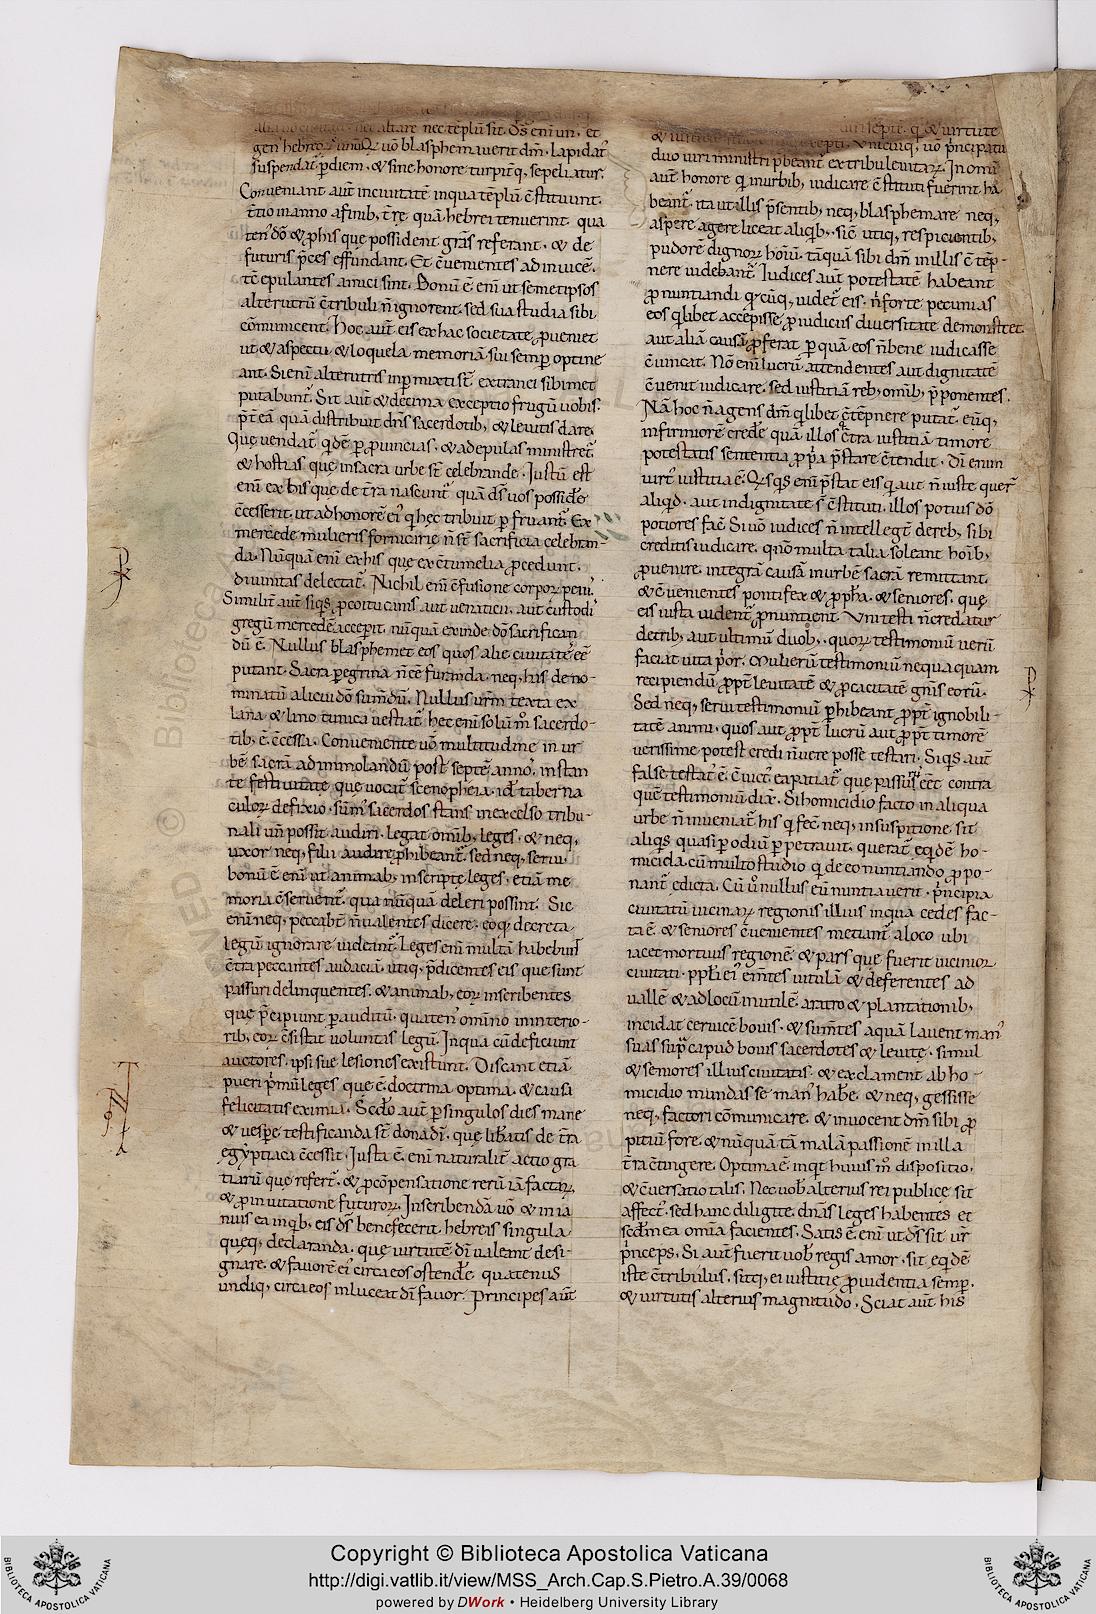 alia uō ciuitate nec altare nec tēplū sit. Dš enī un᷒ et
gen᷒ hebreoꝝ unū. Qui uō blasphemauerit dm̄. lapidat᷒
suspendat᷒ p̱ diem. & sine honore turpit̄q; sepeliatur.
Conueniant aut̄ in ciuitatē in qua tēplū c̄stituunt.
t̄tio in anno a finib; t̄rę quā hebrei tenuerint. qua
ten᷒ dō & p̱ his quę possident grās referant. & de
futuris p̄ces effundant. Et c̄uenientes ad inuicē.
tē epulantes amici sint. Bonū ē enī ut semetipsos
alterutrū c̄tribuli n̄ ignorent. sed sua studia sibi
cōmunicent. Hoc aut̄ eis ex hac societate ꝓueniet
ut & aspectu & loquela memoriā sui semp̱ optine
ant. Si enī alterutris inp̱mixti st̄. extranei sibimet
putabunt᷒. Sit aut̄ & decima exceptio frugū uobis.
p̄t eā quā distribui dn̄s sacerdotib; & leuitis dare.
Que uendat᷒ qdē p̱ ꝓuincias. & ad epulas ministret᷒
& hostias quę in sacra urbe st̄ celebrande. Iustū est
enī ex his quę de t̄ra nascunt᷒ quā dš uos possidere
c̄cesserit. ut ad honorē ei᷒ q hęc tribuit p̱fruant᷒. Ex
mercede mulieris fornicarię n̄ st̄ sacrificia celebran-
da. Nūquā enī ex his que ex c̄tumelia ꝓcedunt.
diuinitas delectat᷒. Nichil enī c̄fusione corporū peius.
Similit̄ aut̄ siqs ꝓ coitu canis aut uenatici. aut custodis
gregū mercedē accep̱it. nūquā exinde dō sacrifican
dū ē. Nullus blasphemet eos quos alie ciuitates ēē
putant. Sacra p̱egrina n̄ c̄e furanda. neq; his deno-
minatū alicui dō sumdū. Nullus ur̄m texta ex
lana & lino tunica uestiat᷒. hęc enī solū m᷒ sacerdo-
tib; ē. c̄cessa. Conueniente uō multitudine in ur
bē sacrā ad immolandū post septē annoꝝ. instan
te festiuitate quę uocat᷒ scenophegia. id ē taberna
culoꝝ defixio. sūm᷒ sacerdos stans in excelso tribu-
nali un̄ possit audiri. legat om̄ib; leges. & neq;
uxor neq; filii audire ꝓhibeant᷒. sed neq; serui.
bonū ē enī ut animab; inscriptę leges. etiā me
moria c̄seruent᷒. qua nūquā deleri possint. Sic
enī neq; peccabt̄ n̄ ualentes dicere. eo q decreta
legū ignorare uideant᷒. Leges enī multā habebunt
c̄tra peccantes audaciā. utiq; p̄dicentes eis quę sunt
passuri delinquentes. & animab; eoꝝ inscribentes
quę p̄cipiunt p̱ auditū. quaten᷒ om̄ino in interio-
rib; eoꝝ c̄sistat uoluntas legū. In qua cū deficiunt
auctores. ipsi suę lesiones existunt. Discant etiā
pueri p̄mū leges quę ē. doctrina optima. & causa
felicitatis eximia. Secdo aut̄ p̱ singulos dies mane
& uesp̱e testificanda st̄ dona dī. quę lib̄atis de t̄ra
egyptiaca c̄cessit. Iusta ē. enī naturalit̄ actio gra
tiarū quę refert᷒. & ꝓ cōpensatione rerū iā factaꝝ.
& ꝓ inuitatione futuroꝝ. Inscribenda uō & in ia
nuis ea in qb; eis dš benefecerit. hebreis singula
queq; declaranda. quę uirtutē dī ualeant desi-
gnare. & fauorē ei᷒ circa eos ostendere. quatenus
undiq; circa eos inluceat dī fauor. Principes aut̄
septē. q & uirtute
Vnicuiq; uō p̄ncipatui
duo uiri ministri p̄beant᷒ ex tribu leuitaꝝ. In om̄i
aut̄ honore q in urbib; iudicare c̄stituti fuerint ha
beant᷒. ita ut illis p̄sentib; neq; blasphemare neq;
aspere agere liceat aliqb;. sic̄ utiq; respicientib;
pudorē dignoꝝ hoīū. tāquā sibi dm̄ in illis c̄tēp-
nere uidebant᷒. Iudices aut̄ potestatē habeant
ꝓnuntiandi q cūq; uidet᷒ eis. n̄ forte pecunias
eos qlibet accepisse ꝓ iudicus diuersitate demonstret
aut aliā causā ꝓferat p̱ quā eos n̄ bene iudicasse
c̄uincat. Nō enī lucrū attendentes aut dignitatē
c̄uenit iudicare. sed iustitiā reb; om̄ib; p̄ponentes.
Nā hoc n̄ agens dm̄ qlibet c̄tēpnere putat᷒. eūq;
infirmiorē credere quā illos c̄tra iustitiā timore
potestatis sententia ꝓpa p̄stare c̄tendit. Dī enim
uirt᷒ iustitia ē. Qisqs enī p̄stat eis q aut n̄ iuste querunt᷒
aliqd. aut in dignitate st̄ c̄stituti. illos potius dō
potiores facit. Si uō iudices n̄ intellegt̄ de reb; sibi
creditis iudicare. qn̄o multa talia soleant hoīb;
ꝓuenire. integrā causā in urbē sacrā remittant.
& c̄uenientes pontifex & ꝓph̄a. & seniores. quę
eis iusta uident᷒ ꝓnuntient. Vni testi n̄ credatur
de trib; aut ultimū duob;. quoꝝ testimoniū uerū
faciat uita p̄or. Mulierū testimoniū nequaquam
recipiendū ꝓpt̄ leuitatē & ꝓcacitatē gn̄is eorū.
Sed neq; serui testimoniū p̱hibeant ꝓpt̄ ignobili-
tatē animi. quos aut ꝓpt̄ lucrū aut ꝓpt̄ timorē
uerissime potest credi n̄ uere posse testari. Siqs aut̄
false testat᷒ ē. c̄uict᷒ ea patiat᷒ que passurus ēēt contra
quē testimoniū dix̄. Si homicidio facto in aliqua
urbe n̄ inueniat᷒ his q fec̄. neq; in suspitione sit
aliqs quasi p̱ odiū p̱petrauit. querat᷒ eqdē ho-
micida. cū multo studio q de eo nuntiando ꝓpo-
nant᷒ edicta. Cū u᷒ nullus eū nuntiauerit. p̄ncipia
ciuitatū uicinaꝝ regionis illius in qua cedes fac-
ta ē. & seniores c̄uenientes metiant᷒ a loco ubi
iacet mortuus regionē. & pars quę fuerit uicinior
ciuitati. ppl̄i ei᷒ em̄tes uitulā & deferentes ad
uallē & ad locū inutilē aratro & plantationib;
incidat ceruicē bouis. & sum̄tes aquā lauent man᷒
suas supra capud bouis sacerdotes & leuitę. simul
& seniores illius ciuitatis. & exclament ab ho-
micidio mundas se man᷒ habere. & neq; gessisse
neq; factori cōmunicare. & inuocent dm̄ sibi ꝓ
pitiū fore. & nūquā tā malā passionē in illa
t̄ra c̄tingere. Optima ē. inqt huius m᷒ dispositio.
& c̄uersatio talis. Nec uob̄ alterius rei publicę sit
affect᷒. sed hanc diligite. dn̄as leges habentes et
secdm̄ ea om̄ia facientes. Satis ē. enī ut dš sit ur̄
p̄nceps. Si aut̄ fuerit uob̄ regis amor. sit eqdē
iste c̄tribulus. sitq; ei iustitię ꝓuidentia semp̱.
& uirtutis alterius magnitudo. Sciat aut̄ his
Copyright © Biblioteca Apostolica Vaticana
http://digi.vatlib.it/view/MSS_Arch.Cap.S.Pietro.A.39/0068
powered by DWork • Heidelberg University Library